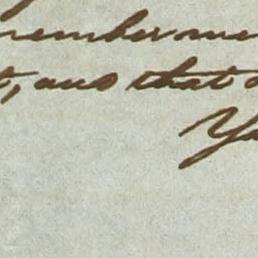 remember me
t, and that
Yo